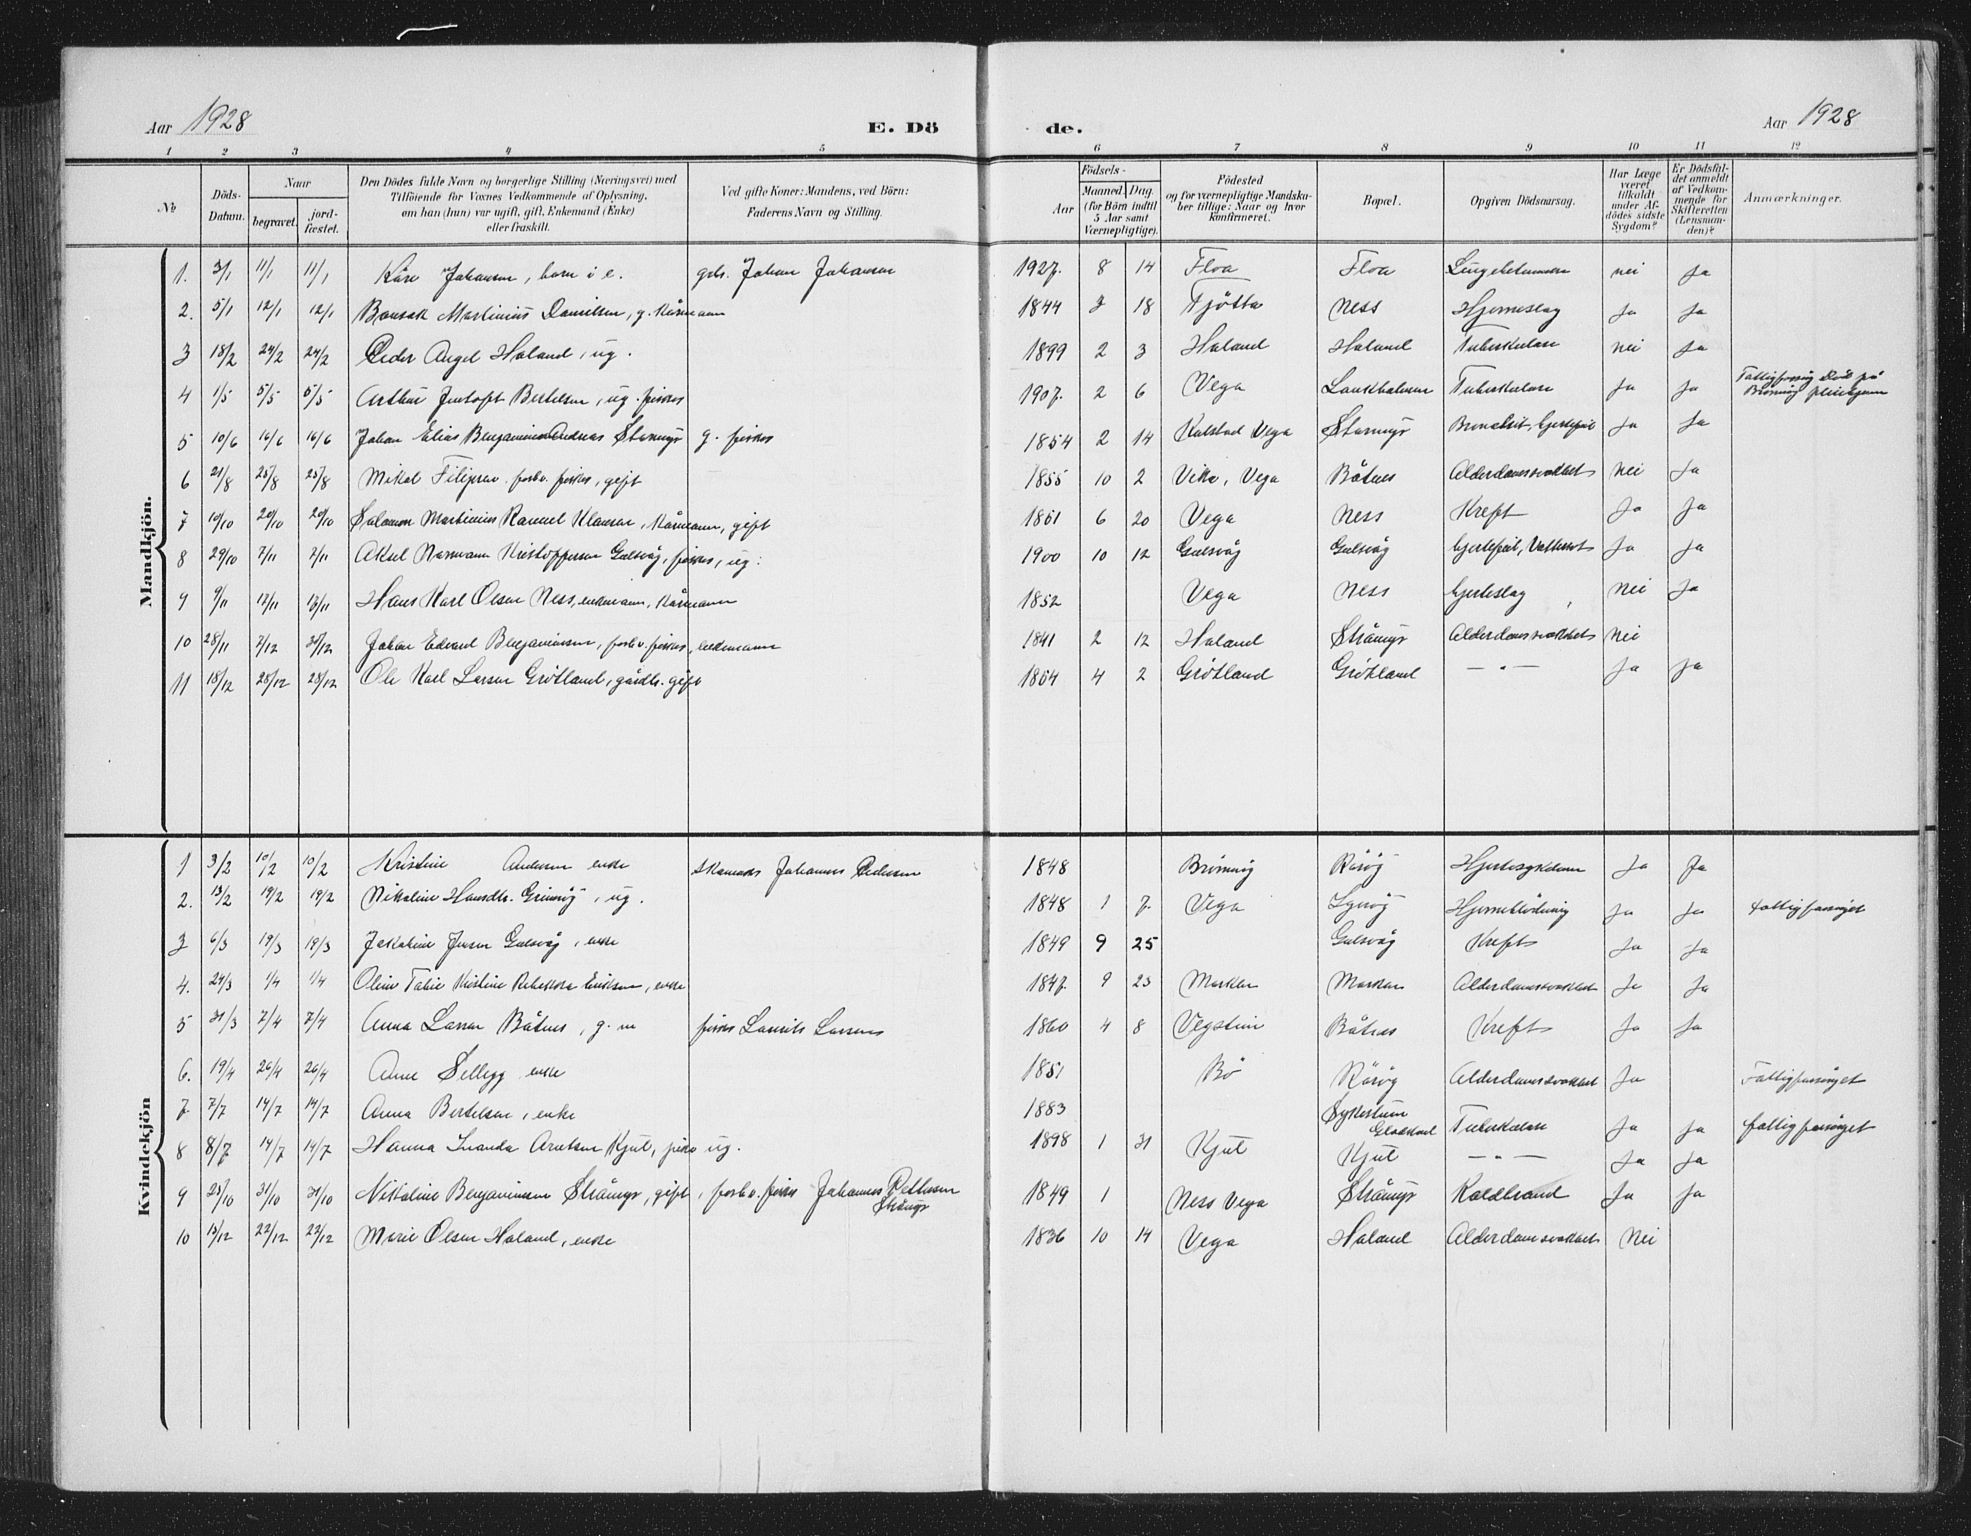 Aar 1928
E. Dö
de.
Aar 1928
1 2 3 4 5 6 7 8 9 10 11 12
No
Döds-Datum.
Naar
begravet.
jord-fæstet.
Den Dödes fulde Navn og borgerlige Stilling (Næringsvei) med
Tilföiende for Voxnes Vedkommende af Oplysning,
om han (hun) var ugift, gift, Enkemand (Enke)
eller fraskilt.
Ved gifte Koner: Mandens, ved Börn:
Faderens Navn og Stilling.
Födsels-
Aar
Maaned. Dag.
(for Börn indtil
5 Aar samt
Værnepligtige).
Födested
og for værnepligtige Mandska-
ber tillige: Naar og hvor
konfirmeret.
Bopæl.
Opgiven Dödsaarsag.
Har Læge
været
tilkaldt
under Af-
dödes sidste
Sygdom?
Er Dödsfal-
det anmeldt
af Vedkom-
mende for
Skifteretten
(Lensman-
den)?
Anmærkninger.
Mandkjön.
1. 3/1 11/1 11/1 Kåre Johansen, barn i e. gbr. Johan Johansen 1927. 8 14 Floa Floa Lungebetennelse nei ja
2. 5/1 12/1 12/1 Martinus Danielsen, g. kårmann 1844 3 18 Tjøtta Ness Hjerneslag ja ja
3 18/2 24/2 24/2 Peder Angel Holand, ug. 1899 2 3 Holand Holand Tuberkulose nei ja
4 1/5 5/5 5/5 Arthur Jentoft Bertelsen, ug. fisker 1907. 2 6 Vega Tuberkulose ja ja Fattigforsørg Død på
Brønnøy pleiehjem
5 10/6 16/6 16/6 Johan Elias Benjaminsen Andreas g. fisker 1854 2 14 Kalstad Vega ja ja
6 21/8 25/8 25/8 Mikal Filipsen forhv. fisker, gift 1855 10 2 Vika, Vega Båtnes Alderdomssvakhet nei ja
7 10/10 20/10 20/10 Salamon Martinius Klausen, kårmann, gift 1851 6 20 Vega Ness Kreft ja ja
8 29/10 7/11 7/11 Aksel Normann Kristoffersen Gulsvåg, fisker, ug. 1900 10 12 Gulsvåg Gulsvåg hjertefeil, Vattersot ja ja
9 9/11 13/11 13/11 Hans Karl Olsen Ness, enkemann, kårmann 1852 Vega Ness hjerteslag nei ja
10 28/11 7/12 30/12 Johan Edvard Benjaminsen, forhv. fisker, enkemann 1841 2 12 Holand Alderdomssvakhet nei
11 18/12 28/12 28/12 Ole Karl Larsen Grøtland, gårdbr. gift 1854 4 2 Grøtland Grøtland — " — ja ja
Kvindekjön
1 3/2 10/2 10/2 Kristine Andersen enke Johannes Pedersen 1848 Brønnøy Rørøy Hjertesykdom ja ja
2. 13/2 19/2 19/2 Nikoline Hansdtr. ug. 1848 1 7 Vega Hjerneblødning ja ja fattigforsørget
3 6/3 19/3 19/3 Jakobine Jensen Gulsvåg, enke 1849 9 25 Gulsvåg Kreft ja ja
4. 24/3 1/4 1/4 Kristine Rebekka Eriksen, enke 1847. 9 23 Alderdomssvakhet ja ja
5 31/3 7/4 7/4 Anna Larsen Båtnes, g. m fisker Laurits Larsen 1860 4 8 Vegstein Båtnes Kreft ja ja
6. 19/4 26/4 26/4 Anne Sellegg enke 1851 Bø Rørøy Alderdomssvakhet ja Fattigforsørget
7. 7/7 14/7 14/7 Anna Bertelsen, enke 1883 Sykestuen Tuberkulose ja ja fattigforsørget
8 8/7 14/7 14/7 Hanna Arntsen Kjul, ug. 1898 1 31 Kjul Kjul — " — ja ja
9 23/10 31/10 31/10 Nikoline Benjaminsen gift, forhv. fisker Johannes 1849 1 Ness Vega Koldbrand ja ja
10 15/12 22/12 22/12 Marie Olsen Holand, enke 1836 10 14 Vega Holand Alderdomssvakhet nei